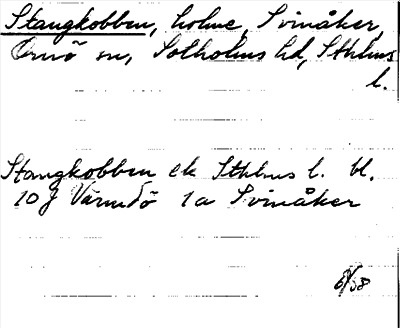 Stangkobben, holme, Svinåker,
Ornö sn, Sotholms hd, Sthlms
l.
Stangkobben ek Sthlms l. bl.
10 J Värmdö 1a Svinåker